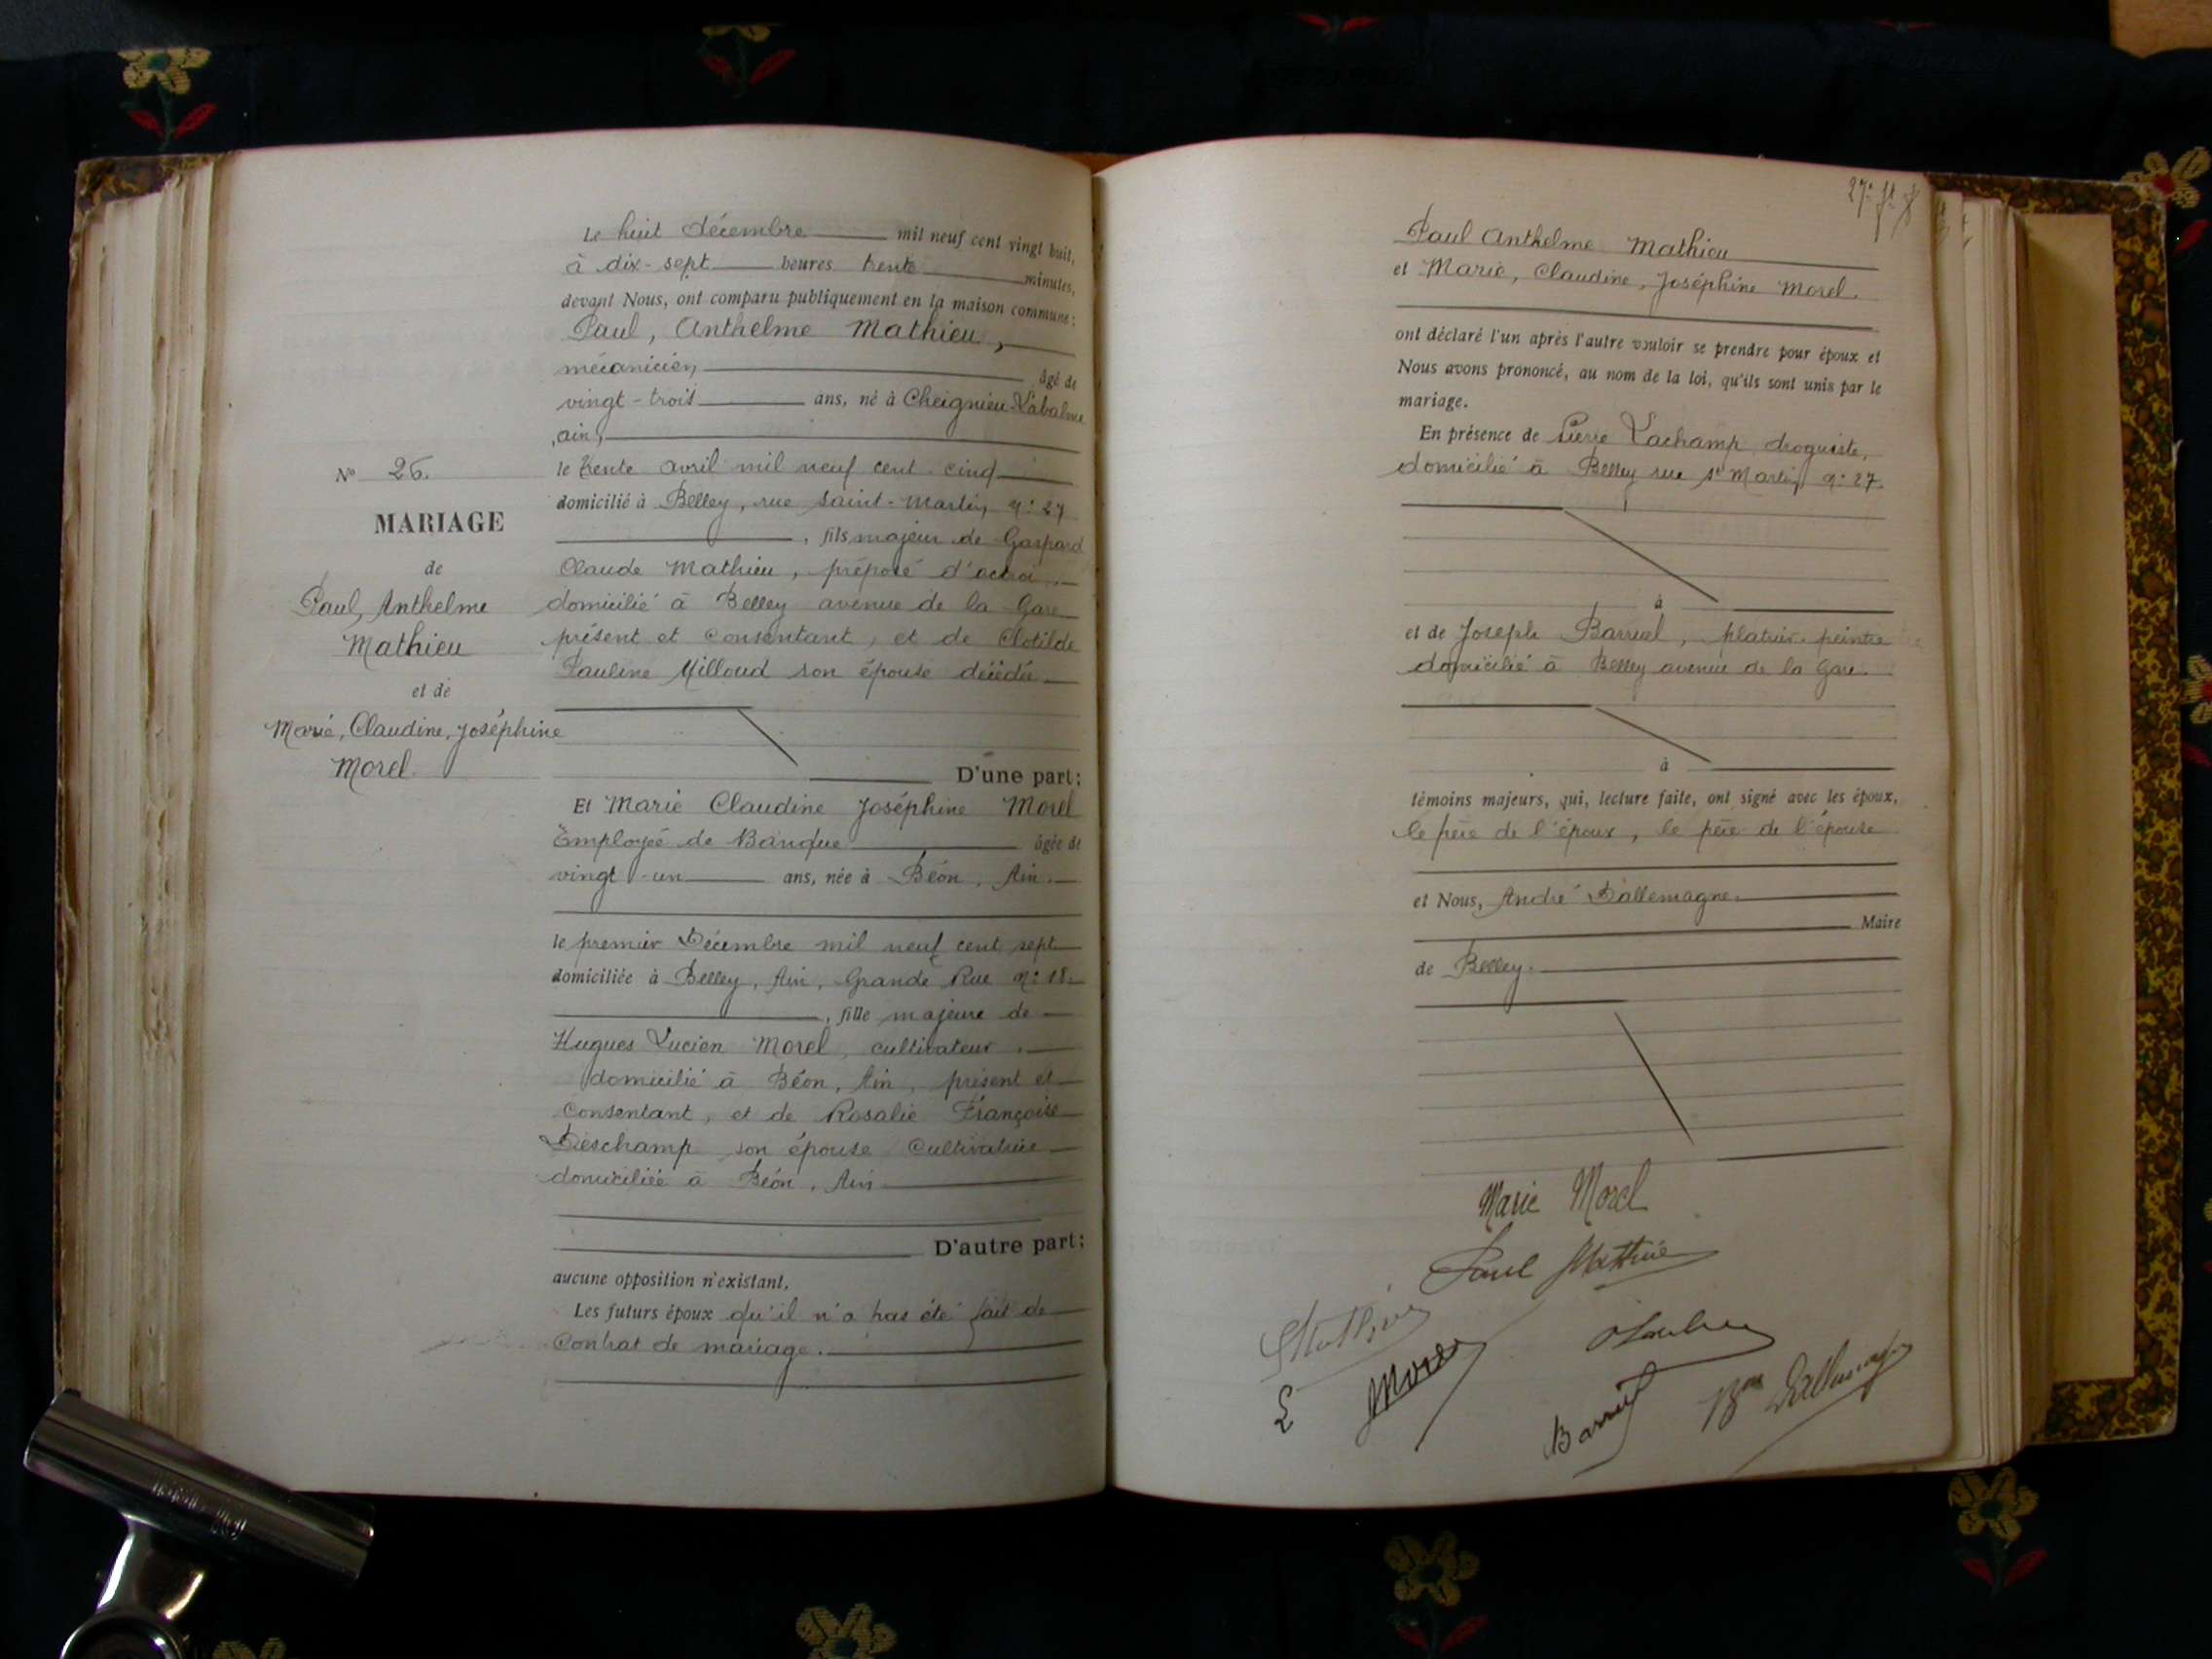 Le huit décembre mil neuf cent vingt huit,
à dix-sept heures trente minutes,
devant Nous, ont comparu publiquement en la maison commune :
Paul, Anthelme Mathieu,
mécanicien, âgé de
vingt-trois ans, né à Cheignieu-Labalme
, ain,
le trente avril mil neuf cent cinq
domicilié à Belley, rue Saint-Martin, n: 27
, fils majeur de Gaspard
Claude Mathieu, préposé d'octroi
domicilié à Belley avenue de la Gare
présent et consentant, et de Clotilde
Pauline Milloud son épouse décédée
D'une part;
Et Marie Claudine Joséphine Morel
Employée de Banque âgée de
vingt-un ans, née à Béon, Ain.
le premier Décembre mil neuf cent sept
domiciliée à Belley, Ain, Grande Rue n: 18.
, fille majeure de
Hugues Lucien Morel, cultivateur
domicilié à Béon, Ain, présent et
consentant, et de Rosalie Françoise
Deschamp son épouse Cultivatrice
domiciliée à Béon, Ain
D'autre part;
aucune opposition n'existant.
Les futurs époux qu'il n'a pas été fait de
Contrat de mariage.
N° 26.
MARIAGE
de
Paul, Anthelme
Mathieu
et de
Marie, Claudine, Joséphine
Morel
Paul Anthelme Mathieu
et Marie, Claudine, Joséphine Morel.
ont déclaré l'un après l'autre vouloir se prendre pour époux et
Nous avons prononcé, au nom de la loi, qu'ils sont unis par le
mariage.
En présence de Pierre Lachamp, droguiste,
domicilié à Belley rue St Martin, n: 27.
à
et de Joseph Barruel, platrier-peintre
domicilié à Belley avenue de la Gare.
à
témoins majeurs, qui, lecture faite, ont signé avec les époux,
le père de l'époux, le père de l'épouse
et Nous, André Dallemagne.
Maire
de Belley.
Marie Morel
Paul Mathieu
Mathieu
L Morel
Barruel
Dallemagne